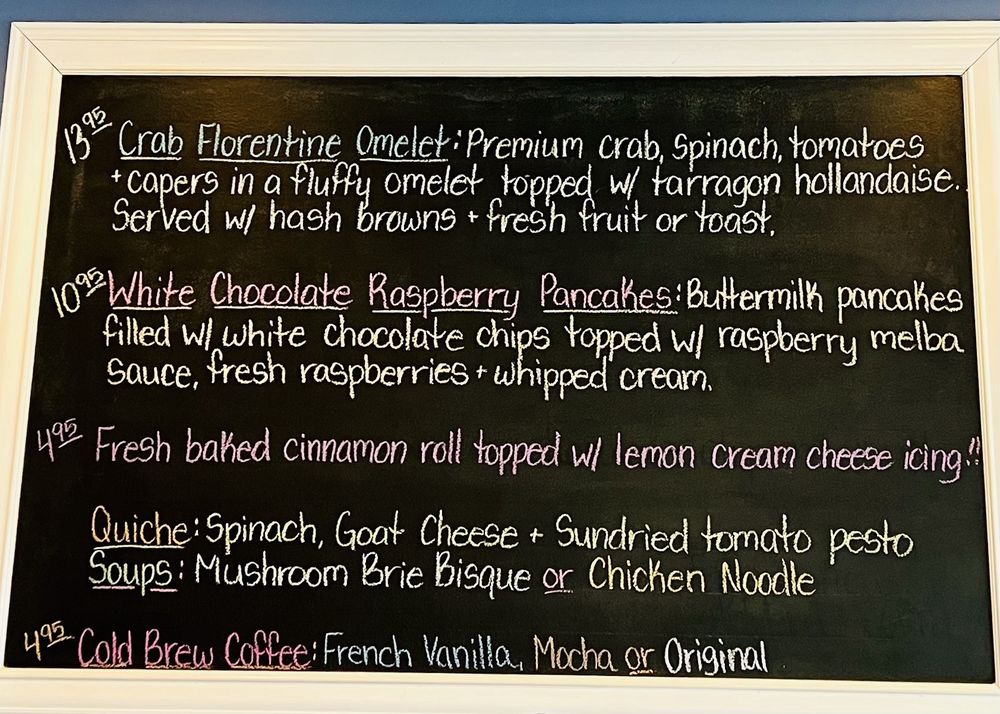 13.95 Crab Florentine Omelet: Premium crab, spinach, tomatoes
+ capers in a fluffy omelet topped w/ tarragon hollandaise.
Served w/ hash browns + fresh fruit or toast.
10.95 White Chocolate Raspberry Pancakes: Buttermilk pancakes
filled w/ white chocolate chips topped w/ raspberry melba
sauce, fresh raspberries + whipped cream.
4.95 Fresh baked cinnamon roll topped w/ lemon cream cheese icing!!
Quiche: Spinach, Goat Cheese + Sundried tomato pesto
Soups: Mushroom Brie Bisque or Chicken Noodle
4.95 Cold Brew Coffee: French Vanilla, Mocha or Original